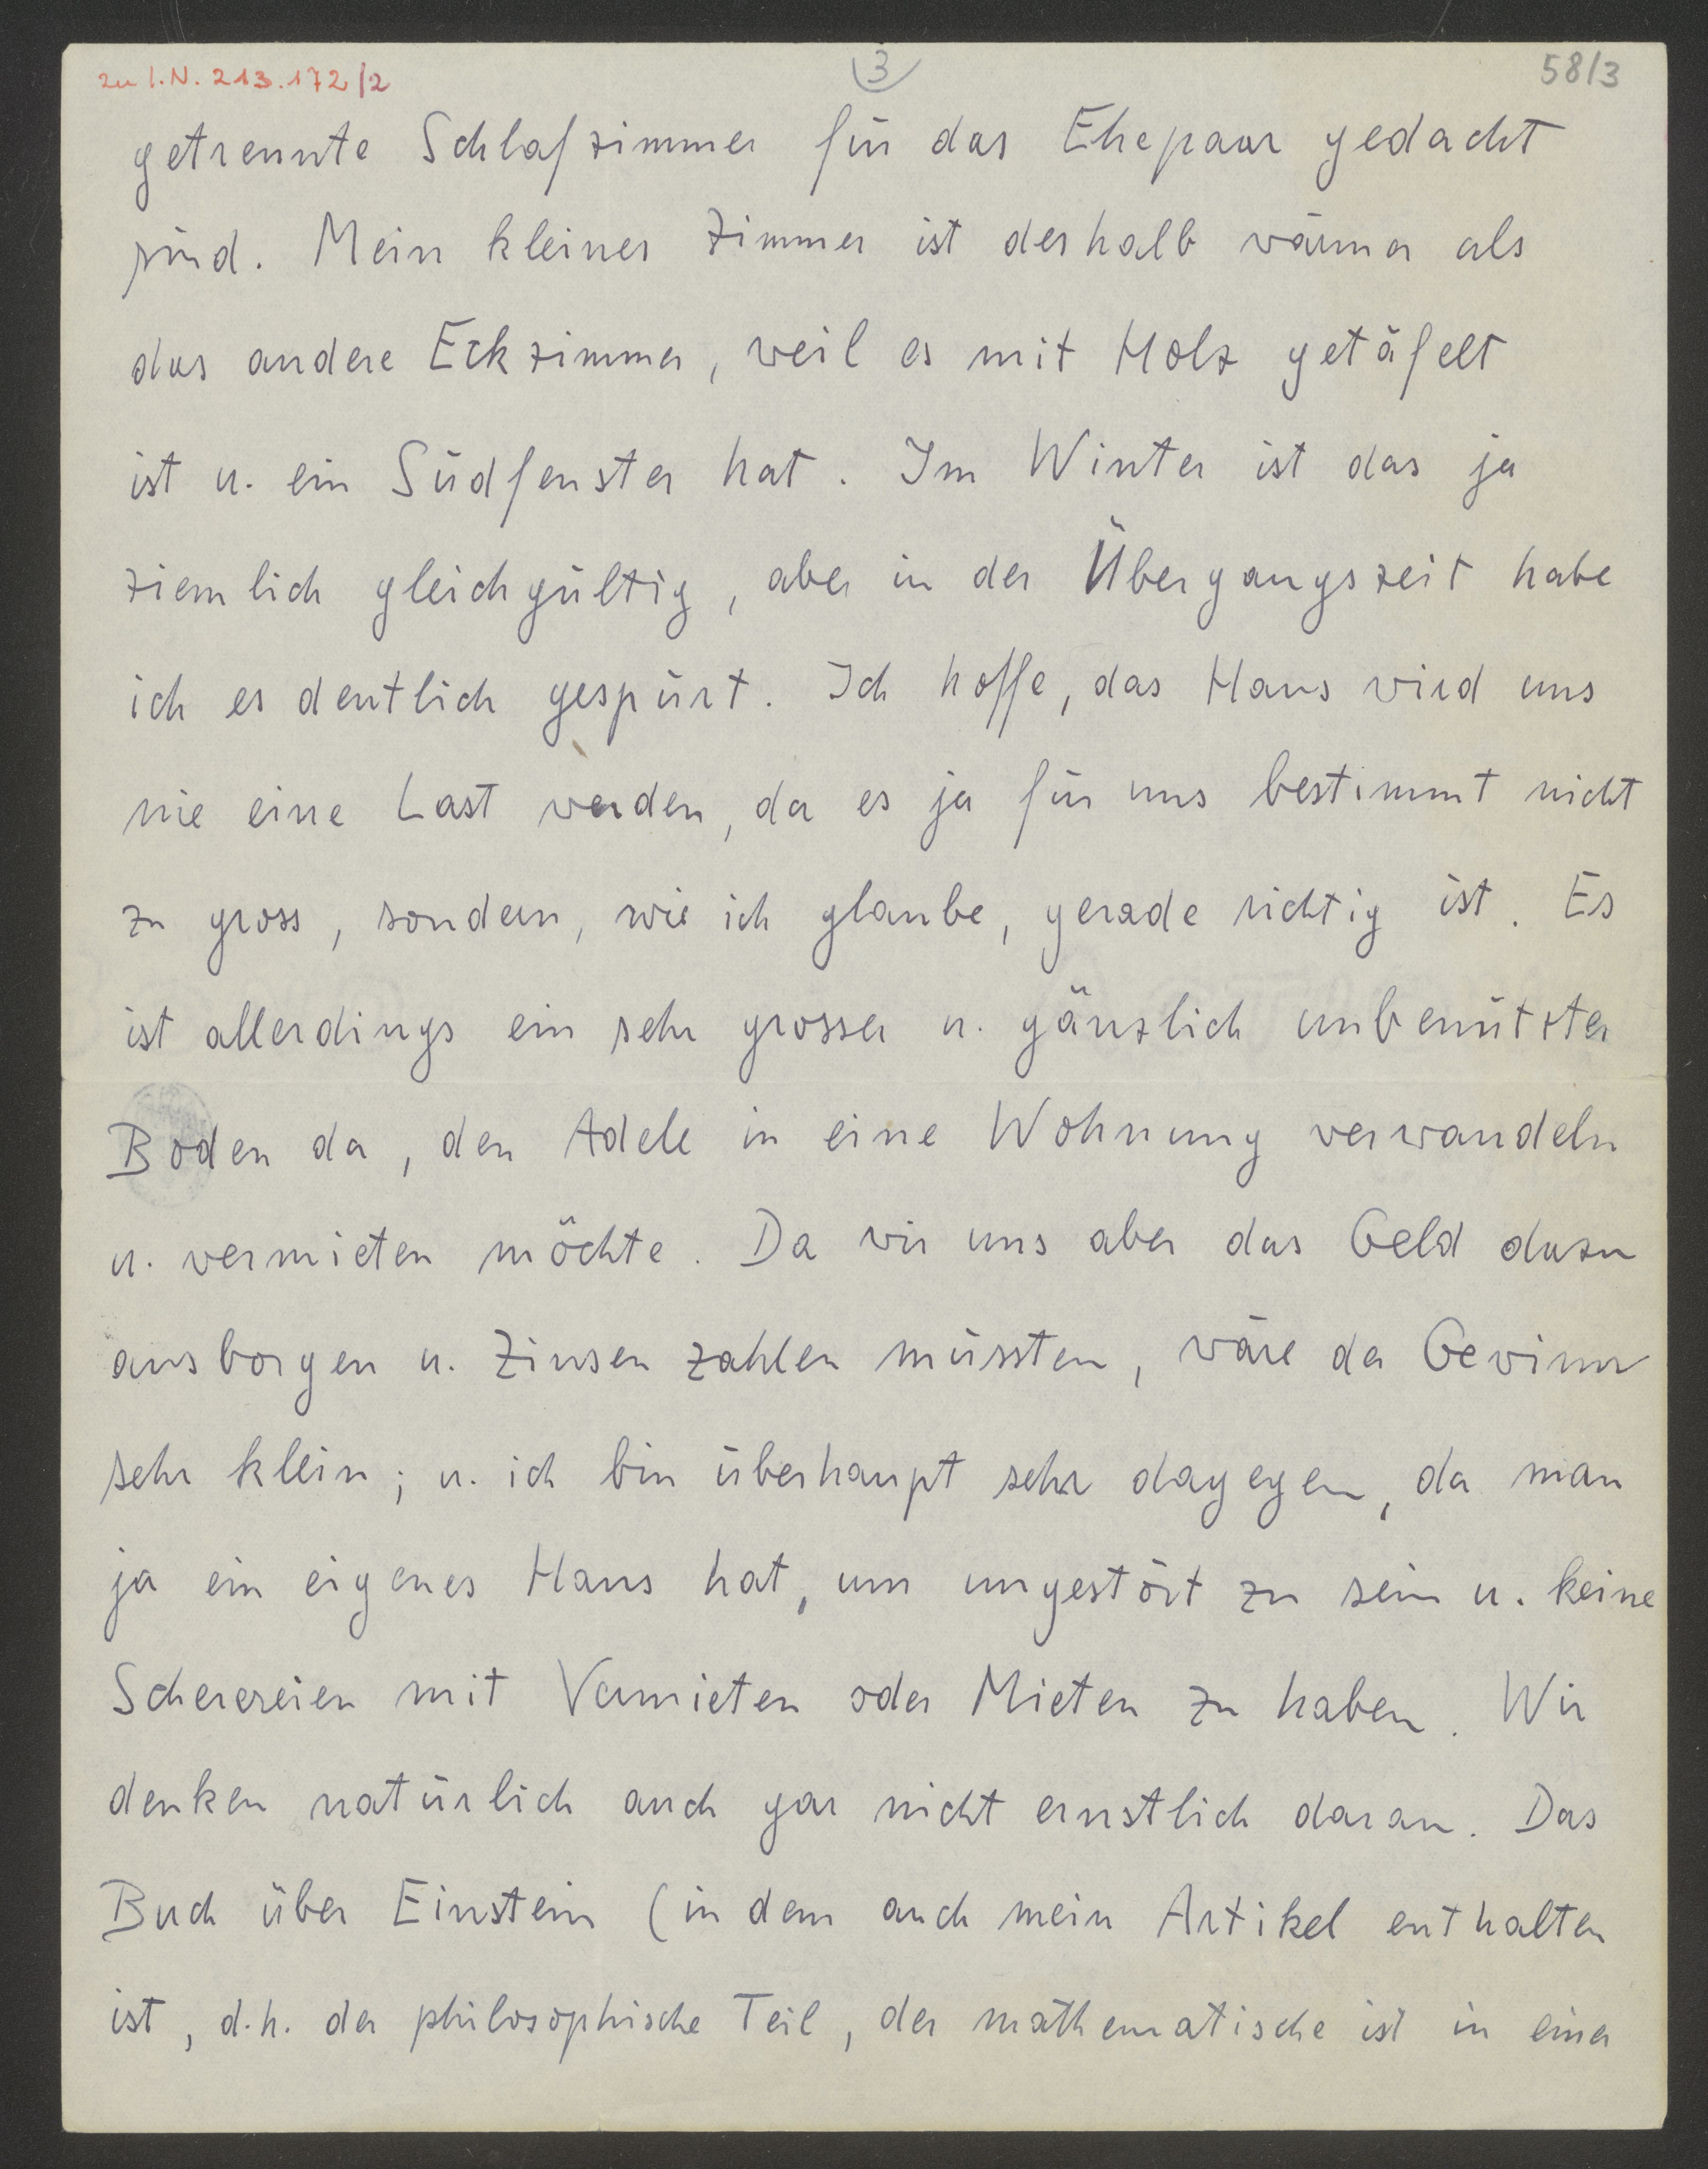 zu I.N. 213.172/2
3
58/3
getrennte Schlafzimmer für das Ehepaar gedacht
sind. Mein kleines Zimmer ist deshalb wärmer als
das andere Eckzimmer, weil es mit Holz getäfelt
ist u. ein Südfenster hat. Im Winter ist das ja
ziemlich gleichgültig, aber in der Übergangszeit habe
ich es deutlich gespürt. Ich hoffe, das Haus wird uns
nie eine Last werden, da es ja für uns bestimmt nicht
zu gross, sondern, wie ich glaube, gerade richtig ist. Es
ist allerdings ein sehr grosser u. gänzlich unbenützter
Boden da, den Adele in eine Wohnung verwandeln
u. vermieten möchte. Da wir uns aber das Geld dazu
ausborgen u. Zinsen zahlen müssten, wäre der Gewinn
sehr klein; u. ich bin überhaupt sehr dagegen, da man
ja ein eigenes Haus hat, um ungestört zu sein u. keine
Scherereien mit Vermieten oder Mieten zu haben. Wir
denken natürlich auch gar nicht ernstlich daran. Das
Buch über Einstein (in dem auch mein Artikel enthalten
ist, d.h. der philosophische Teil, der mathematische ist in einer